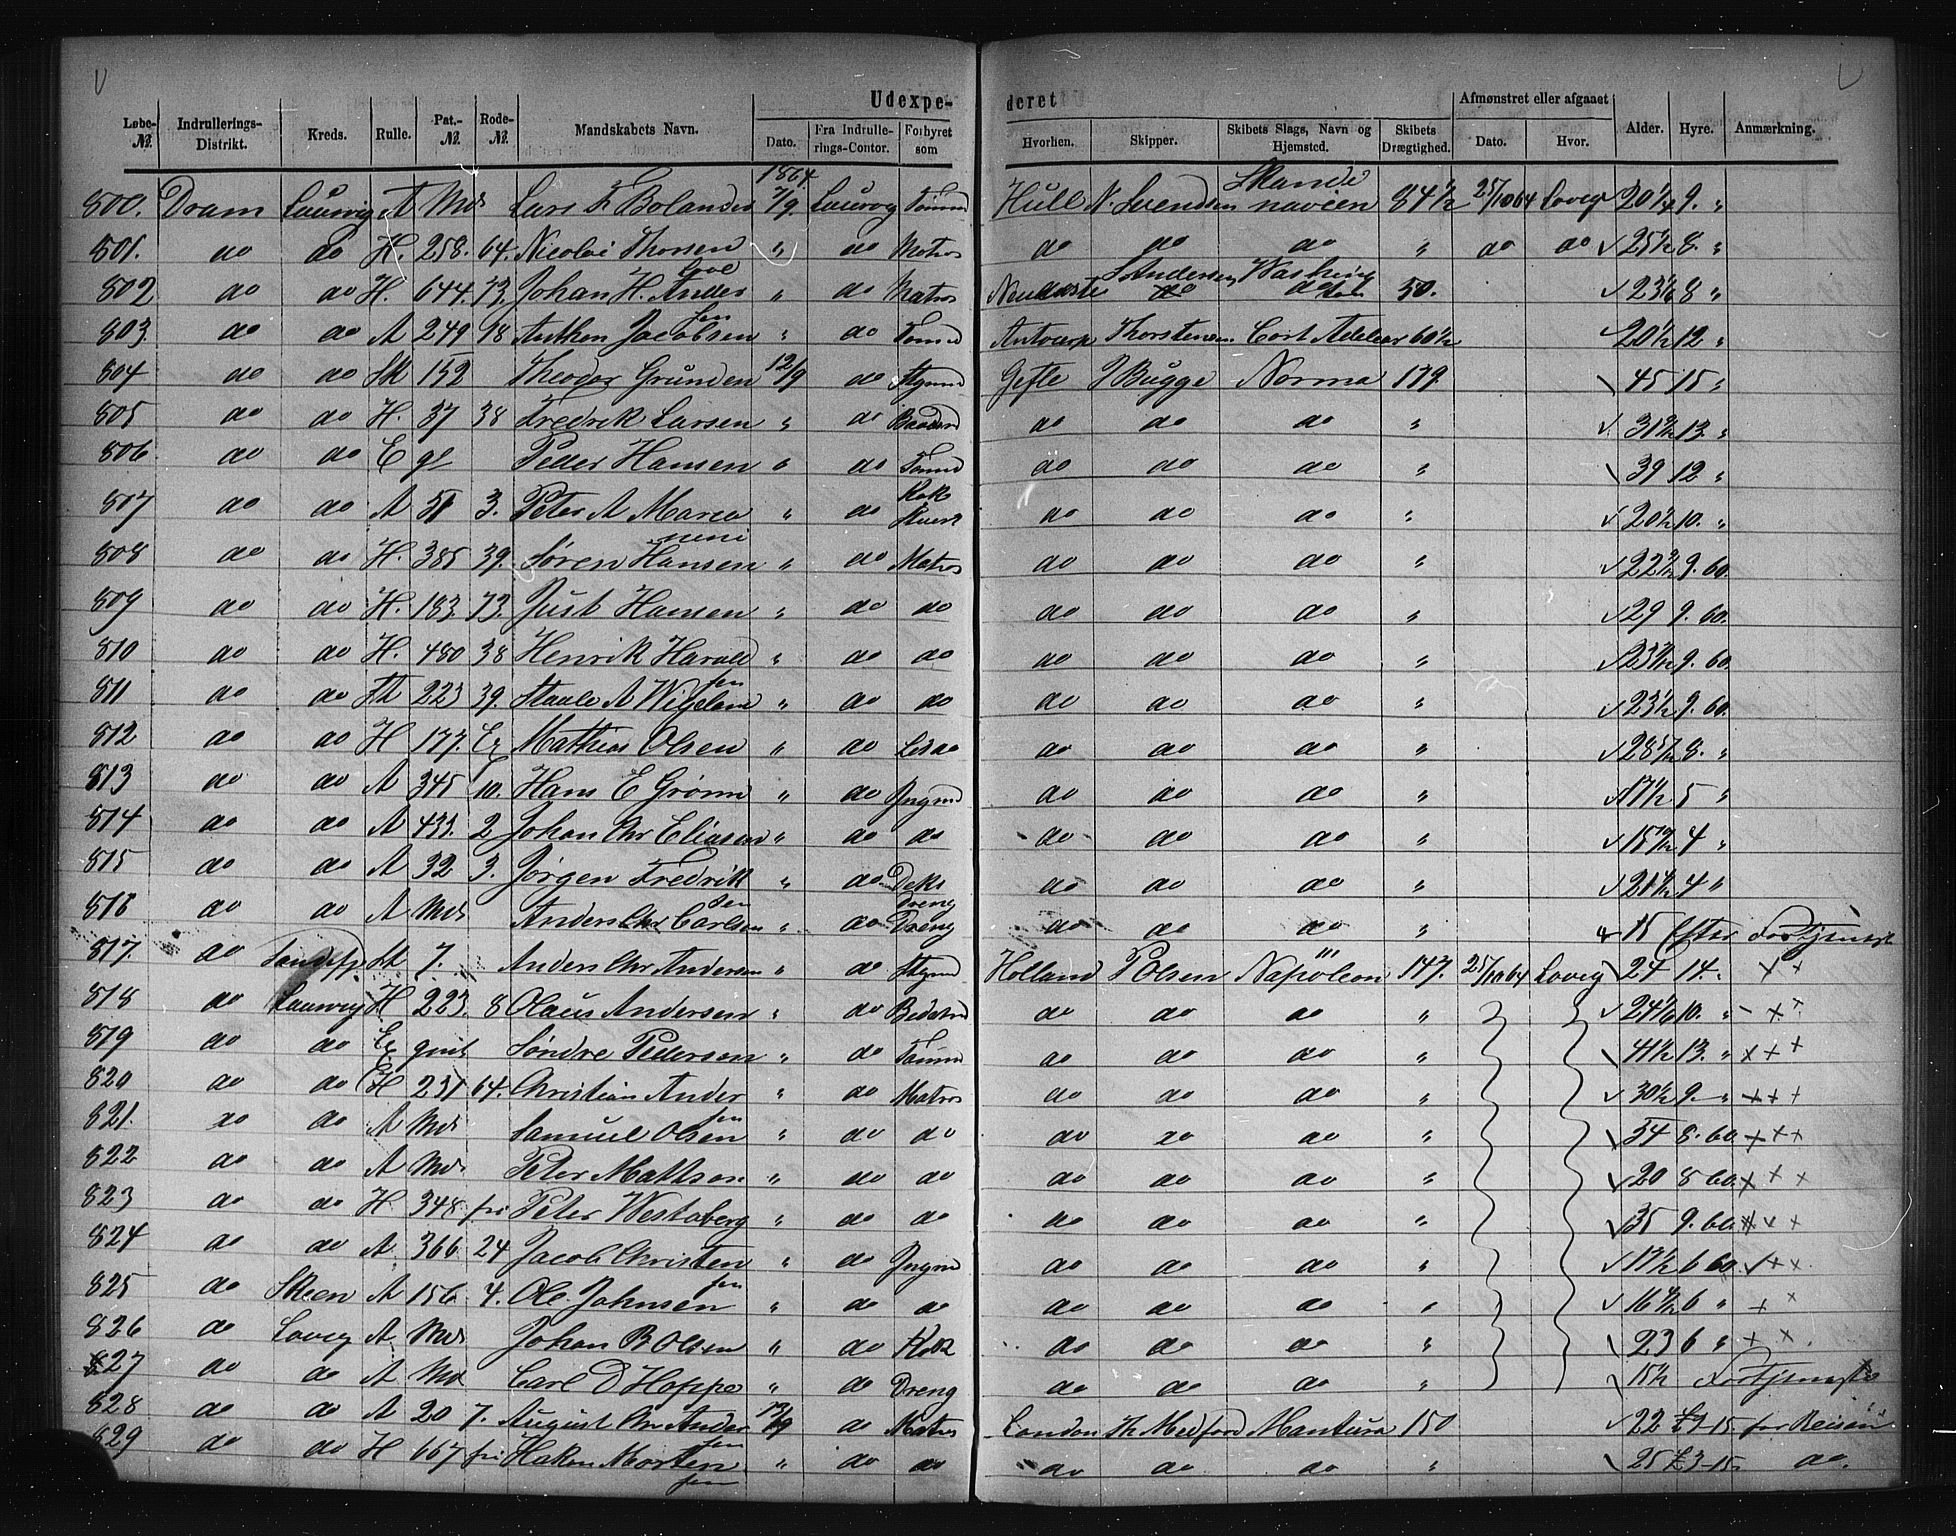 Udexpe- deret
Løbe- № Indrullerings- Distrikt. Kreds. Rulle. Pat.- № Rode- № Mandskabets Navn. Dato. Fra Indrulle- rings-Contor. Forhyret som Hvorhen. Skipper. Skibets Slags, Navn og Hjemsted. Skibets Drægtighed. Afmønstret eller afgaaet Dato. Hvor. Alder. Hyre. Anmærkning.
1864
800. Dram Laurvig A Mds Lars F Bolandes 7/9 Laurvig Tømmd Hull N. Svendsen Skandi navien 84½ 25/10 64 Lavig 20¼ 9. „
801. do do H. 258. 64. Nicolai Thorsen „ do Matros do do do „ do do 25½ 8. „
802 do do H. 644. 73. Johan H. Anders sen „ do Matros S Andersen Washing ton 50. 8 „
803. do do A 249 18 Anthon Jacobsen „ do Tømmd Antwerp Thorstensen Cort Adelaer 60½ 20½ 12 „
804 do do Sk 152 Theodor Grunden 12/9 do Stymd Gefle J Bugge Norma 179. 45 15 „
805 do do H. 37 38 Fredrik Larsen „ do do do do „ 13. „
806 do do E gl Peder Hansen „ do Tømmd do do do „ 39 12 „
807 do do A 51 3. Peter A Marcu „ do Kok do do do „ 20½ 10. „
808 do do H. 385 39. Søren Hansen „ do Matros do do do „ 9. 60.
809 do do H. 183 73. Just Hansen „ do do do do do „ 29 9. 60.
810 do do H. 480 38 Henrik Harald sen „ do do do do do „ 9. 60.
811 do do St 223 39. Staale A Wigeland „ do do do do do „ 23½ 9. 60.
812 do do H 177. Ex Mathias Olsen „ do do do do „ 8. „
813 do do A 345 10. Hans E Grønn „ do Jngmd do do do „ 17½ 5 „
814 do do A 433. 2 Johan Chr Eliasen „ do do do do do „ 4 „
815 do do A 32 3. Jørgen Fredrik sen „ do Deks Dreng do do do „ 4 „
816 do do A Mds Anders Chr Carlsen „ do Dreng do do do „ 15 Efter Fortjeneste
817. do Sandefj St 7. Anders Chr Andersen „ do Stymd Holland P Olsen Napoleon III 147. 25/10 64 Lavig 24 14. × ×
818 do Laurvig H 223. 8 Olaus Andersen „ do do do do „ 10. „
819 do do Ex qvit Søndre Pedersen „ do Tømmd do do do „ 41½ 13. „ × × ×
820 do do H 231 64. Christian Ander sen „ do Matros do do do „ 30½ 9. „ × × ×
821. do do A Mds Samuel Olsen „ do do do do do „ 34 8. 60 × × ×
822 do do A Mds Peter Mattson „ do do do do do „ 20 8 60. × × ×
823 do do H 348 fri Peter Westaberg „ do do do do do „ 35 9. 60. × × ×
824 do do A 366 24 Jacob Christen sen „ do Jngmd do do do „ 17½ 6 60. × ×
825 do Skeen A 156 4. Ole Johnsen „ do do do do do „ 6 „ × ×
826 do Lavig A Mds Johan B Olsen „ do Kok do do do „ 23 6 „ × ×
827 do do A Mds Carl D Hoppe „ do Dreng do do do „ 15½ Fortjeneste
828 do do A 20 7. August Chr Ander sen 13/9 do Matros London Th Medford Mantura 150 22 15. for Reisen
829 do do H 667 fri Haken Morten sen „ do do do do do „ 25 £3-15. do.